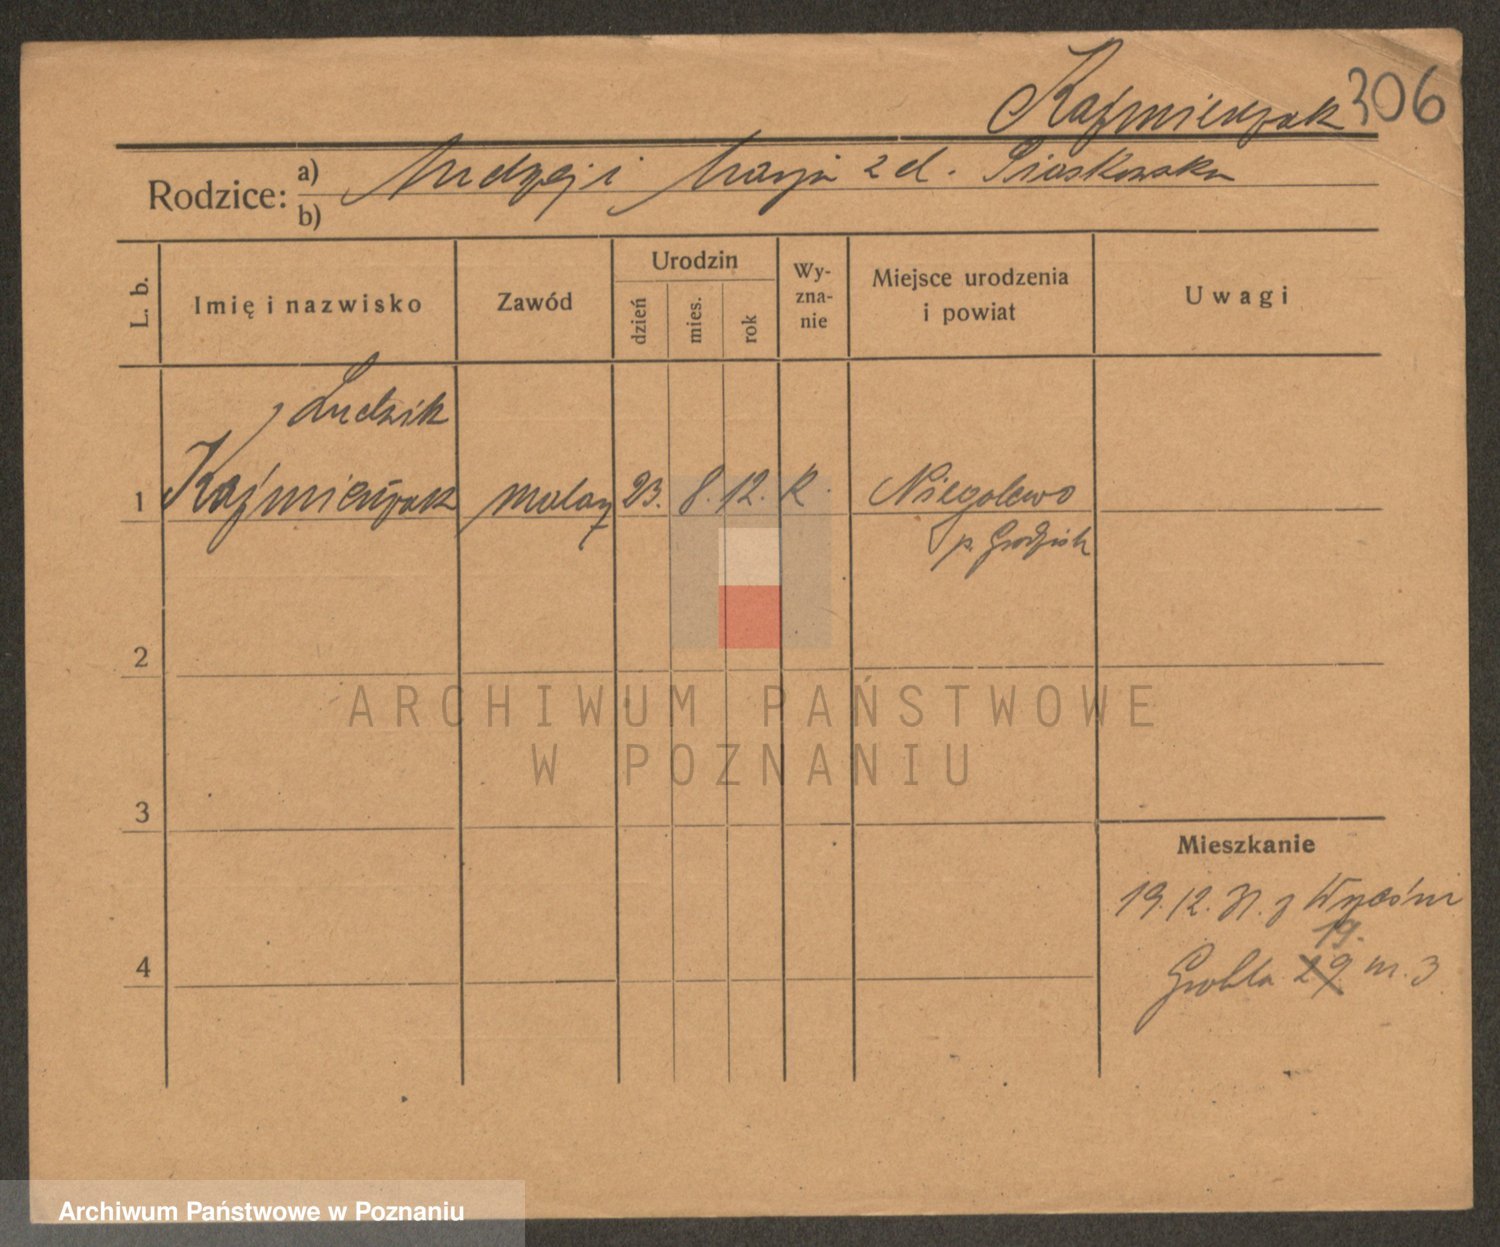 Kaźmierczak 306
Rodzice: a) Andrzej i Marja z d. Piaskowska
b)
L. b.
Imię i nazwisko
Zawód
Urodzin
dzień
mies.
rok
Wy-
zna-
nie
Miejsce urodzenia
i powiat
Uwagi
Ludwik
1 Kaźmierczak malarz 23. 8. 12. k. Niegolewo
p. Grodzisk
2
3
4
Mieszkanie
19.12.31. z
19.
Grobla 29 m. 3
ARCHIWUM PAŃSTWOWE
W POZNANIU
Archiwum Państwowe w Poznaniu